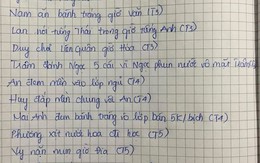 Nam ăn bánh tráng giờ văn (T3)
Lan nói từng Thái trong giờ tiếng Anh (T3)
Duy chơi Liên Quân giờ Hóa (T3)
Trâm đánh Ngọc 5 cái vì Ngọc phun nước vô mặt
An đem mền vào lớp ngủ (T4)
Hay đắp mền chung với An (T4)
Mai Anh đem bánh tráng vô lớp bán 5K/bịch (T4)
Phương xịt nước hoa đi học (T5)
Vy nặn mụn giờ (T5)